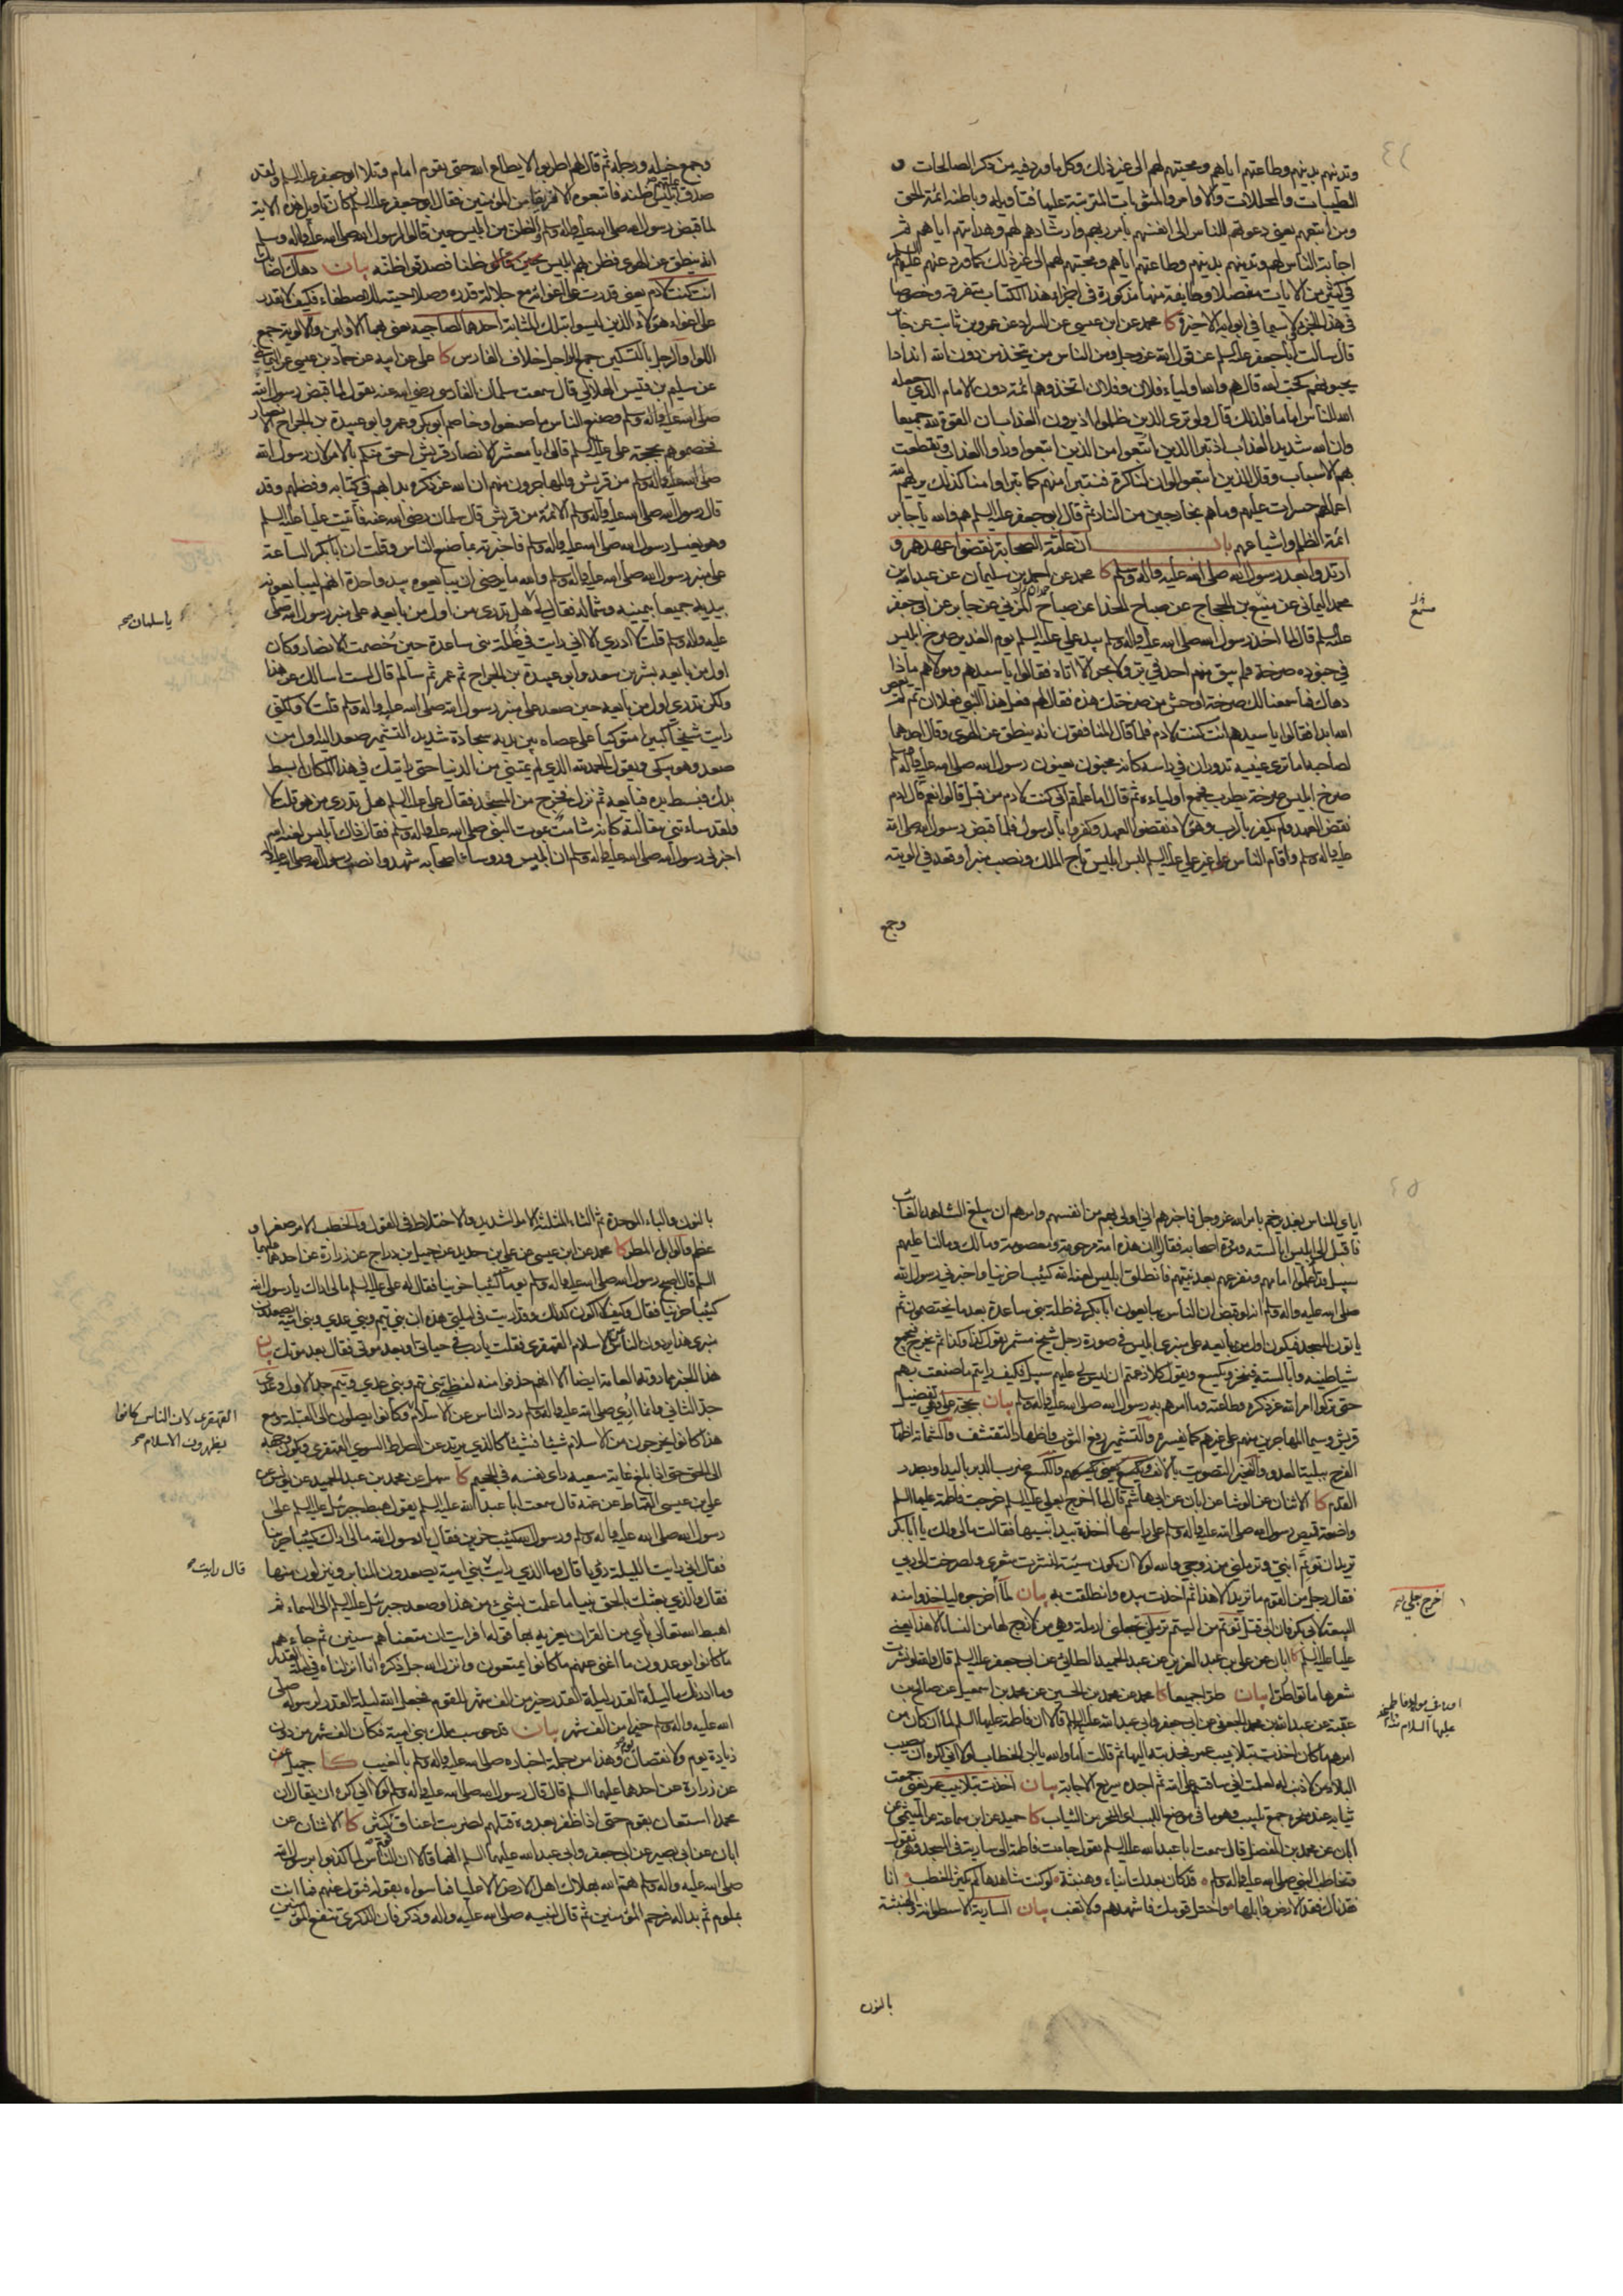 وتدينهم بدينهم وطاعتهم اياهم ومحبتهم لهم الى غير ذلك وكل ما ورد فيه من ذكر الصالحات و
الطيبات والمحللات والاوامر والمثوبات المترتبة عليها فتأويله وباطنه ائمة الحق
ومن اتبعهم يعني دعوتهم للناس الى انفسهم بأمر ربهم وارشادهم لهم وهدايتهم اياهم ثم
اجابة الناس لهم وتدينهم بدينهم وطاعتهم اياهم ومحبتهم لهم الى غير ذلك كما ورد عنهم عليهم السلم
في كثير من الايات مفصلا وطايفة منها مذكورة في اجزاء هذا الكتاب متفرقة وخصوصا
في هذا الجزء لا سيما في ابوابه الاخيرة كا محمد عن ابن عيسى عن السراد عن عمرو بن ثابت عن جابر
قال سالت ابا جعفر عليه السلم عن قول الله عز وجل ومن الناس من يتخذ من دون الله اندادا
يحبونهم كحب الله قال هم والله اولياء فلان وفلان اتخذوهم ائمة دون الامام الذي جعله
الله للناس اماما فلذلك قال ولو ترى الذين ظلموا اذ يرون العذاب ان القوة لله جميعا
وان الله شديد العذاب اذ تبرأ الذين اتبعوا من الذين اتبعوا ورأوا العذاب وتقطعت
بهم الاسباب وقال الذين اتبعوا لو ان لنا كرة فنتبرأ منهم كما تبرأوا منا كذلك يريهم الله
اعمالهم حسرات عليهم وما هم بخارجين من النار ثم قال ابو جعفر عليه السلم هم والله يا جابر
ائمة الظلم واشياعهم باب ان عامة الصحابة نقضوا عهدهم و
ارتدوا بعد رسول الله صلى الله عليه واله وسلم كا محمد عن احمد بن سليمان عن عبد الله بن
محمد اليماني عن منيع بن الحجاج عن صباح الحذا عن صباح المزني عن جابر عن ابي جعفر
عليه السلم قال لما اخذ رسول الله صلى الله عليه واله وسلم بيد علي عليه السلم يوم الغدير صرخ ابليس
في جنوده صرخة فلم يبق منهم احد في بر ولا بحر الا اتاه فقالوا يا سيدهم ومولاهم ماذا
دهاك فما سمعنا لك صرخة اوحش من صرختك هذه فقال لهم فعل هذا النبي فعلا ان تم لم يعص
الله ابدا فقالوا يا سيدهم انت كنت لادم فلما قال المنافقون انه ينطق عن الهوى وقال احدهما
لصاحبه اما ترى عينيه تدوران في راسه كانه مجنون يعنون رسول الله صلى الله عليه واله وسلم
صرخ ابليس صرخة بطرب فجمع اولياءه ثم قال اما علمتم اني كنت لادم من قبل قالوا نعم قال ادم
نقض العهد ولم يكفر بالرب وهؤلاء نقضوا العهد وكفروا بالرسول فلما قبض رسول الله صلى الله
عليه واله وسلم واقام الناس على غير علي عليه السلم لبس ابليس تاج الملك ونصب منبرا وقعد في الوية
وجمع
منيع
وجمع خيله ورجله ثم قال لهم اطربوا لا يطاع الله حتى يقوم امام وتلا ابو جعفر عليه السلم ولقد
صدق عليهم ابليس ظنه فاتبعوه الا فريقا من المؤمنين فقال ابو جعفر عليه السلم كان تأويل هذه الاية
لما قبض رسول الله صلى الله عليه واله وسلم والظن من ابليس حين قالوا لرسول الله صلى الله عليه واله وسلم
انه ينطق عن الهوى فظن بهم ابليس ظنا فصدقوا ظنه بيان دهاك اصابك
انت كنت لادم يعني قدرت على اغوائه مع جلالة قدره وصلاحيته للاصطفاء فكيف لا تقدر
على اغواء هؤلاء الذين ليسوا بتلك المثابة احدهما لصاحبه يعني بهما الاولين والالوية جمع
اللواء والرجل بالتسكين جمع الراجل خلاف الفارس كا علي عن ابيه عن حماد بن عيسى عن اليماني
عن سليم بن قيس الهلالي قال سمعت سلمان الفارسي رضي الله عنه يقول لما قبض رسول الله
صلى الله عليه واله وسلم وصنع الناس ما صنعوا وخاصم ابو بكر وعمر وابو عبيدة بن الجراح الانصار
فخصموهم بحجة علي عليه السلم قالوا يا معشر الانصار قريش احق منكم بالامر لان رسول الله
صلى الله عليه واله وسلم من قريش والمهاجرون منهم ان الله عز ذكره بدأ بهم في كتابه وفضلهم وقد
قال رسول الله صلى الله عليه واله وسلم الائمة من قريش قال سلمان رضي الله عنه فاتيت عليا عليه السلم
وهو يغسل رسول الله صلى الله عليه واله وسلم فاخبرته بما صنع الناس وقلت ان ابا بكر الساعة
على منبر رسول الله صلى الله عليه واله وسلم والله ما يرضى ان يبايعوه بيد واحدة انهم ليبايعونه
بيديه جميعا بيمينه وشماله فقال لي هل تدري من اول من بايعه على منبر رسول الله صلى
عليه واله وسلم قلت لا ادري الا اني رايت في ظلة بني ساعدة حين خصمت الانصار وكان
اول من بايعه بشر بن سعد وابو عبيدة بن الجراح ثم عمر ثم سالم قال لست اسالك عن هذا
ولكن تدري اول من بايعه حين صعد على منبر رسول الله صلى الله عليه واله وسلم قلت لا ولكني
رايت شيخا كبيرا متوكيا على عصاه بين عينيه سجادة شديد التشمير صعد اليه اول من
صعد وهو يبكي ويقول الحمد لله الذي لم يمتني من الدنيا حتى رايتك في هذا المكان ابسط
يدك فبسط يده فبايعه ثم نزل فخرج من المسجد فقال علي عليه السلم هل تدري من هو قلت لا
ولقد ساءتني مقالته كانه شامت بموت النبي صلى الله عليه واله وسلم فقال ذاك ابليس لعنه الله
اخبرني رسول الله صلى الله عليه واله وسلم ان ابليس ورؤساء اصحابه شهدوا نصب رسول الله صلى الله عليه واله
يا سلمان صح
اياي للناس بغدير خم بامر الله عز وجل فاخبرهم اني اولى بهم من انفسهم وامرهم ان يبلغ الشاهد الغائب
فاقبل الى ابليس ابالسته ومردة اصحابه فقالوا ان هذه امة مرحومة ومعصومة ومالك وما لنا عليهم
سبيل قد اعلموا امامهم ومفزعهم بعد نبيهم فانطلق ابليس لعنه الله كئيبا حزينا واخبرني رسول الله
صلى الله عليه واله وسلم انه لو قبض ان الناس يبايعون ابا بكر في ظلة بني ساعدة بعد ما يختصمون ثم
ياتون المسجد فيكون اول من يبايعه على منبري ابليس في صورة رجل شيخ مشمر يقول كذا وكذا ثم يخرج فيجمع
شياطينه وابالسته فينخر ويكسع ويقول كلا زعمتم ان ليس لي عليهم سبيل فكيف رايتم ما صنعت بهم
حتى تركوا امر الله عز ذكره وطاعته وما امرهم به رسول الله صلى الله عليه واله وسلم بيان بحجة علي وهي تفضيل
قريش وسيما المهاجرين منهم على غيرهم كما يفسره والتشمير رفع الثوب واظهار التقشف والشماتة اظهار
الفرح ببلية العدو والنخير التصويت بالانف ويكسع والكسع ضرب الدبر باليد او بصدر
القدم كا الاثنان عن الوشا عن ابان عن ابي هاشم قال لما اخرج بعلي عليه السلم خرجت فاطمة عليها السلم
واضعة قميص رسول الله صلى الله عليه واله وسلم على راسها اخذة بيد ابنيها فقالت مالي ولك يا ابا بكر
تريد ان تؤتم ابني وترملني من زوجي والله لولا ان تكون سيئة لنشرت شعري ولصرخت الى ربي
فقال رجل من القوم ما تريد الى هذا ثم اخذت بيده وانطلقت به بيان لما اخرجوه لياخذوا منه
البيعة لابي بكر
عليا عليه السلم كا ابان عن علي بن عبد العزيز عن عبد الحميد الطائي عن ابي جعفر عليه السلم قال والله لو نشرت
شعرها ماتوا طرا بيان طرا جميعا كا محمد عن محمد بن الحسين عن محمد بن اسمعيل عن صالح بن
عقبة عن عبد الله بن محمد الجعفي عن ابي جعفر وابي عبد الله عليهما السلم قالا ان فاطمة عليها السلم لما ان كان من
امرهم ما كان اخذت بتلابيب عمر فجذبته اليها ثم قالت اما والله يا ابن الخطاب لولا اني اكره ان يصيب
البلاء من لا ذنب له لعلمت اني ساقسم على الله ثم اجده سريع الاجابة بيان اخذت بتلابيب عمر يعني جمعت
ثيابه عند نحره جمع تلبيب وهو ما في موضع اللبب اي النحر من الثياب كا حميد عن ابن سماعة عن الميثمي عن
ابان عن محمد بن المفضل قال سمعت ابا عبد الله عليه السلم يقول جاءت فاطمة الى سارية في المسجد وهي تقول
وتخاطب النبي صلى الله عليه واله وسلم قد كان بعدك انباء وهنبثة لو كنت شاهدها لم يكثر الخطب انا
فقدناك فقد الارض وابلها واختل قومك فاشهدهم ولا تغب بيان السارية الاسطوانة والهنبثة
بالنون
اخرج بعلي
عليها السلام
بالنون والباء الموحدة ثم الثاء المثلثة الامر الشديد والاختلاط في القول والخطب الامر صغر او
عظم والوابل المطر كا محمد عن ابن عيسى عن علي بن حديد عن جميل بن دراج عن زرارة عن احدهما عليهما
السلم قال اصبح رسول الله صلى الله عليه واله وسلم يوما كئيبا حزينا فقال له علي عليه السلم مالي اراك يا رسول الله
كئيبا حزينا فقال وكيف لا اكون كذلك وقد رايت في ليلتي هذه ان بني تيم وبني عدي وبني امية يصعدون
منبري هذا يردون الناس عن الاسلام القهقرى فقلت يا رب في حياتي او بعد موتي فقال بعد موتك بيان
هذا الخبر مما روته العامة ايضا الا انهم حذفوا منه لفظتي بني تيم وبني عدي وتيم جد الاول وعدي
جد الثاني وانما اري صلى الله عليه واله وسلم رد الناس عن الاسلام وكانوا يصلون الى القبلة ومع
هذا كانوا يخرجون من الاسلام شيئا فشيئا كالذي يرتد عن الصراط السوي القهقرى ويكون وجهه
الى الحق حتى اذا بلغ غاية سعيه راى نفسه في الجحيم كا سهل عن محمد بن عبد الحميد عن يونس عن
علي بن عيسى القماط عن عمه قال سمعت ابا عبد الله عليه السلم يقول هبط جبرئيل عليه السلم على
رسول الله صلى الله عليه واله وسلم ورسول الله كئيب حزين فقال يا رسول الله مالي اراك كئيبا حزينا
فقال اني رايت الليلة رؤيا قال وما الذي رايت بني امية يصعدون المنابر وينزلون منها
فقال والذي بعثك بالحق نبيا ما علمت بشيء من هذا وصعد جبرئيل عليه السلم الى السماء ثم
اهبط الله تعالى بآي من القران يعزيه بها قوله افرايت ان متعناهم سنين ثم جاءهم
ما كانوا يوعدون ما اغنى عنهم ما كانوا يمتعون وانزل الله جل ذكره انا انزلناه في ليلة القدر
وما ادريك ما ليلة القدر ليلة القدر خير من الف شهر للقوم فجعل الله ليلة القدر لرسوله صلى
الله عليه واله وسلم خيرا من الف شهر بيان قد حوسب ملك بني امية فكان الف شهر من دون
زيادة يوم ولا نقصان يوم وهذا من جملة اخباره صلى الله عليه واله وسلم بالغيب كا جميل عن
عن زرارة عن احدهما عليهما السلم قال قال رسول الله صلى الله عليه واله وسلم لولا اني اكره ان يقال ان
محمدا استعان بقوم حتى اذا ظفر بعدوه قتلهم لضربت اعناق قوم كثير كا الاثنان عن
ابان عن ابي بصير عن ابي جعفر وابي عبد الله عليهما السلم انهما قالا ان الناس لما كذبوا برسول الله
صلى الله عليه واله وسلم هم الله بهلاك اهل الارض الا عليا فما سواه بقوله فتول عنهم فما انت
بملوم ثم بدا له فرحم المؤمنين ثم قال لنبيه صلى الله عليه واله وذكر فان الذكرى تنفع المؤمنين
القهقرى لان الناس كانوا
يظهرون الاسلام صح
قال رايت صح